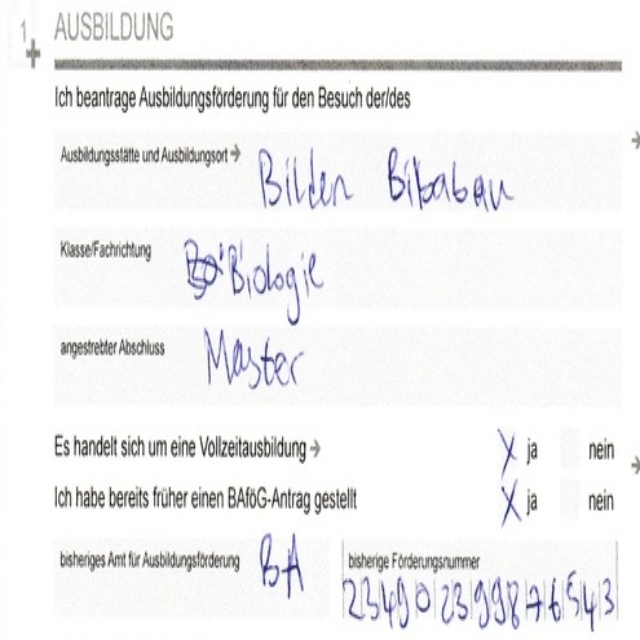 1 AUSBILDUNG
Ich beantrage Ausbildungsförderung für den Besuch der/des
Ausbildungsstätte und Ausbildungsort → Bilden Bibabau
Klasse/Fachrichtung Biologie
angestrebter Abschluss Master
Es handelt sich um eine Vollzeitausbildung → X ja nein
Ich habe bereits früher einen BAföG-Antrag gestellt X ja nein
bisheriges Amt für Ausbildungsförderung BA bisherige Förderungsnummer
234902399876543